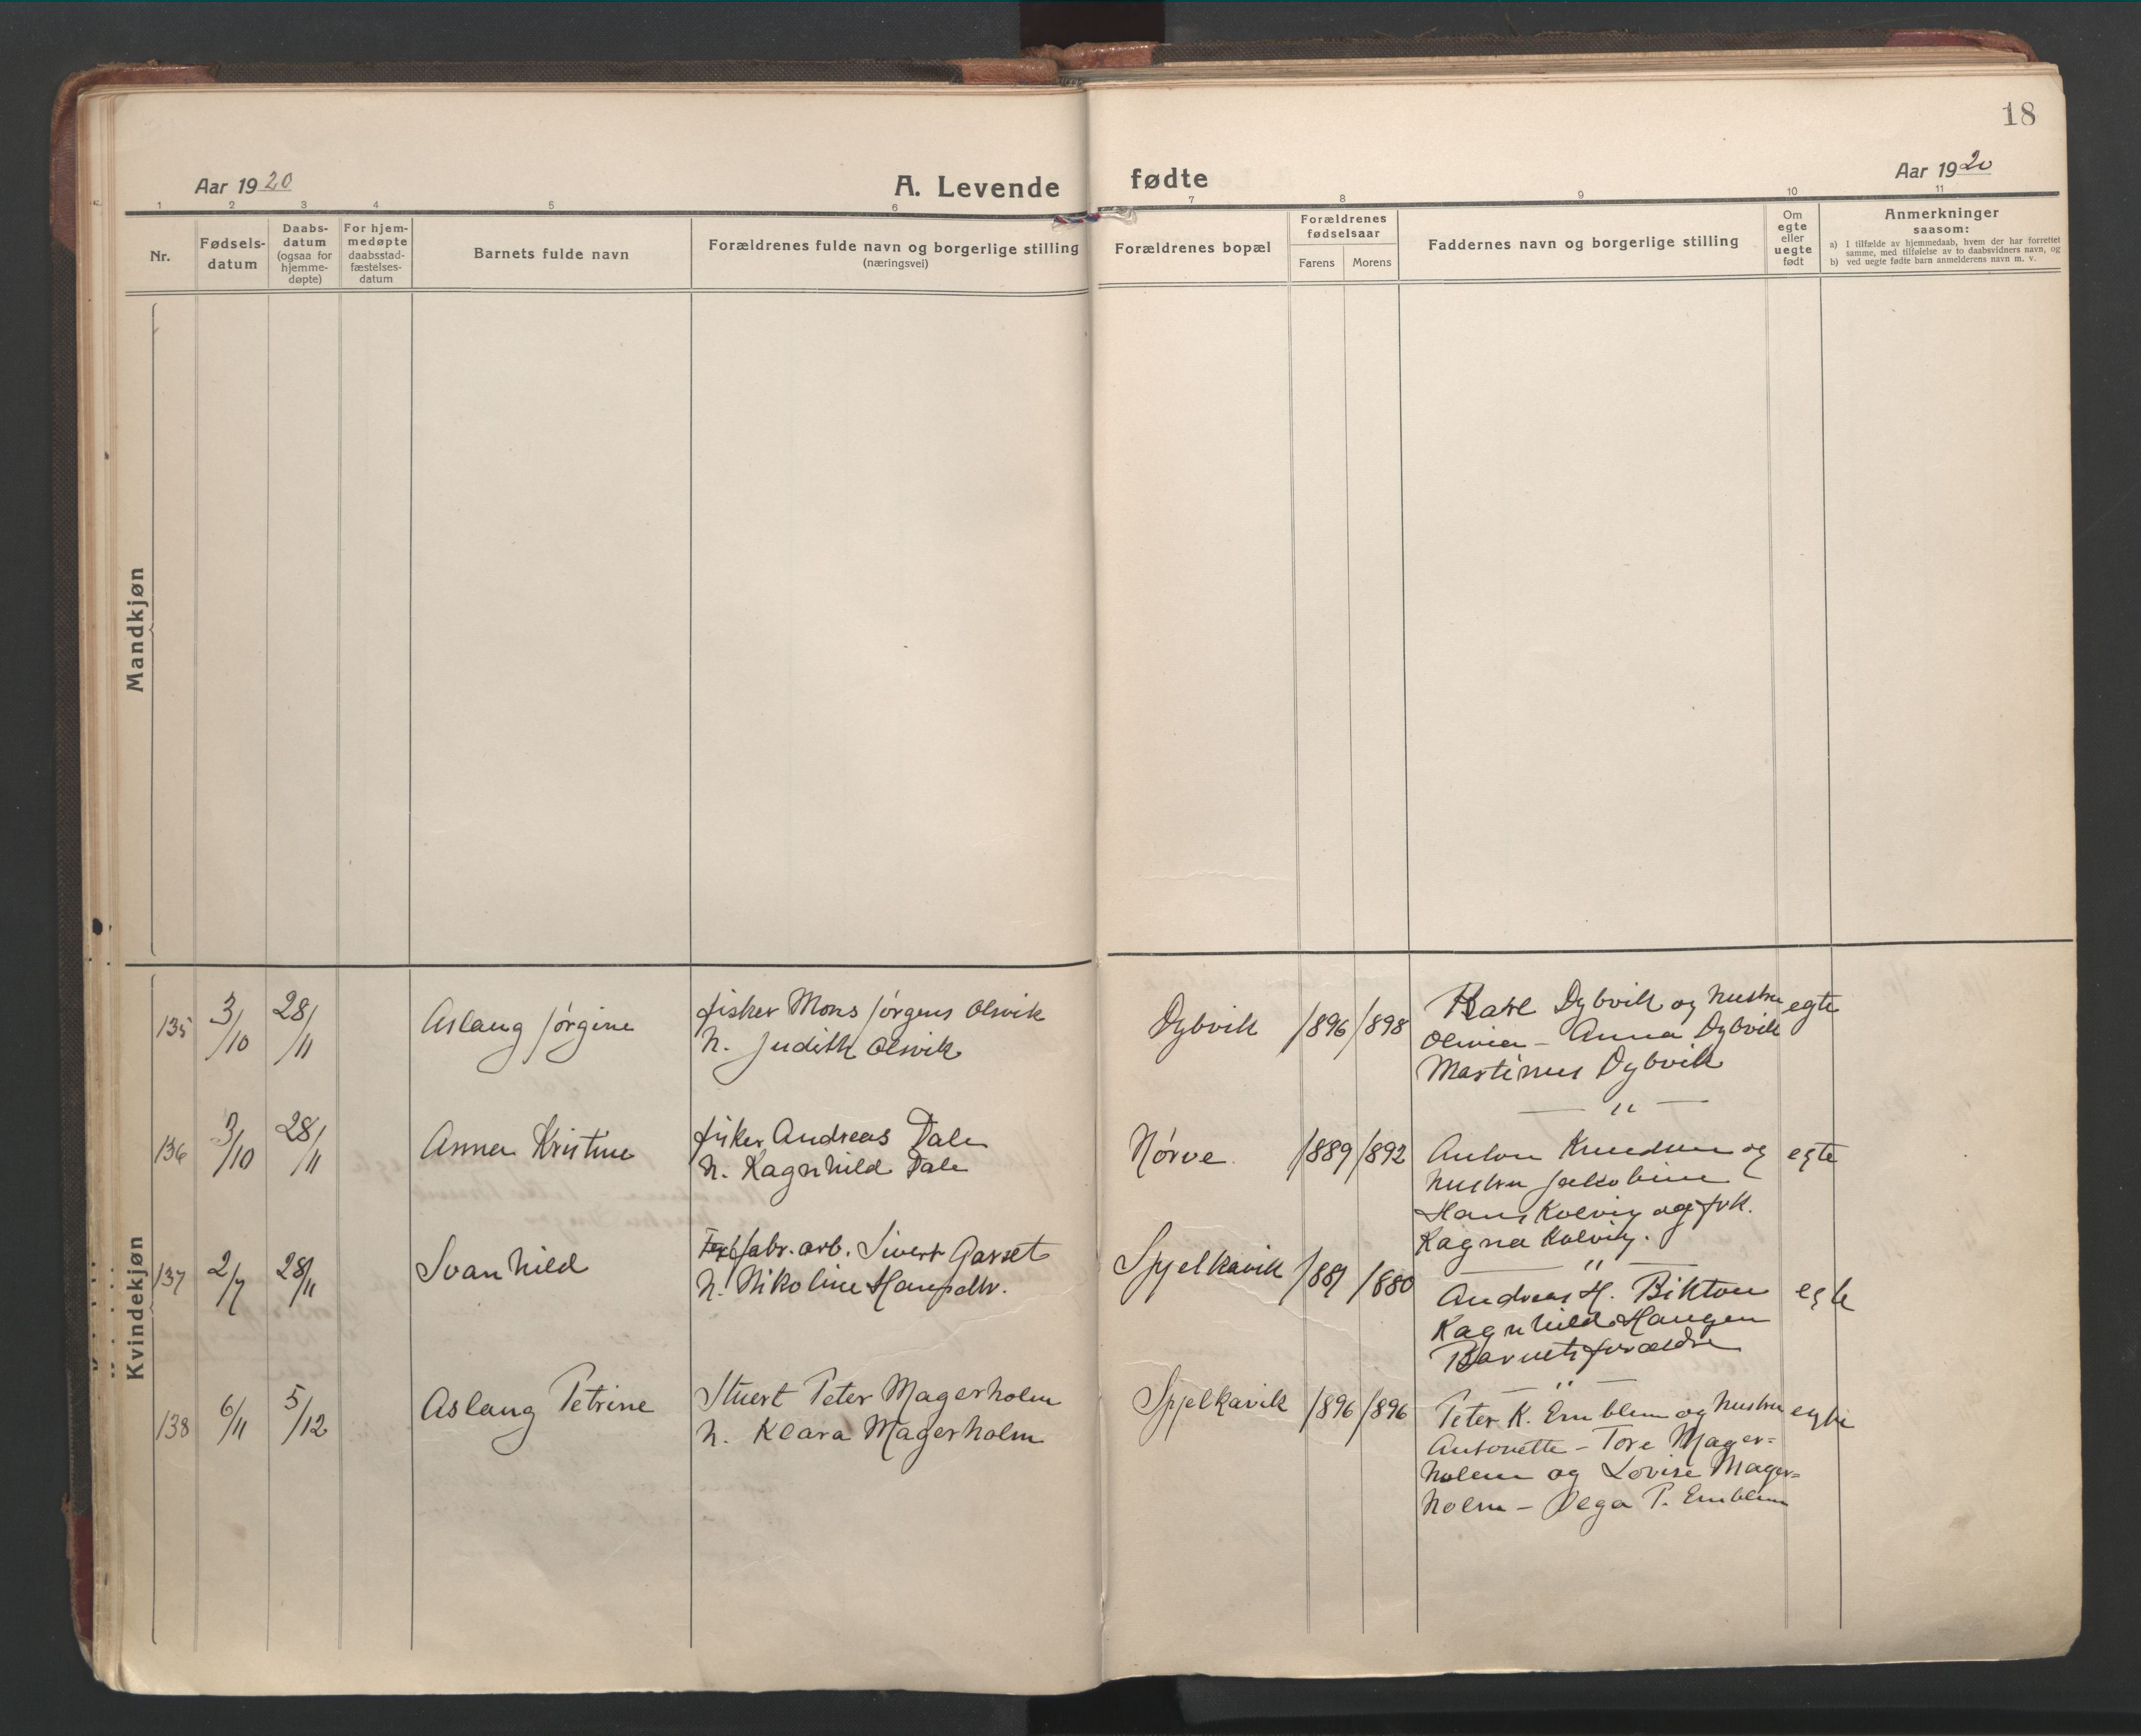 18
Aar 1920
A. Levende fødte
Aar 1920
1 2 3 4 5 6 7 8 9 10 11
Nr.
Fødsels-
datum
Daabs-
datum
(ogsaa for
hjemme-
døpte)
For hjem-
medøpte
daabsstad-
fæstelses-
datum
Barnets fulde navn
Forældrenes fulde navn og borgerlige stilling
(næringsvei)
Forældrenes bopæl
Forældrenes
fødselsaar
Farens Morens
Faddernes navn og borgerlige stilling
Om
egte
eller
uegte
født
Anmerkninger
saasom:
a) I tilfælde av hjemmedaab, hvem der har forrettet
samme, med tilføielse av to daabsvidners navn, og
b) ved uegte fødte barn anmelderens navn m. v.
Mandkjøn
Kvindekjøn
135 3/10 28/11 Aslaug Jørgine
fisker Mons Jørgens Olsvik
h. Judith Olsvik
Dybvik 1896 1898
Karl Dybvik og hustru egte
Olivia - Anna Dybvik
Martinus Dybvik
— " —
136 3/10 28/11 Anna Kristine
fisker Andreas Dale
h. Ragnhild Dale
Nørve 1889 1892
Anton Knudsen og egte
hustru Jakobine
Hans Kolvig og frk.
Ragna Kolvig.
— " —
137 2/7 28/11 Svanhild
fabr. arb. Sivert Gasset
h. Nikoline Hansdtr.
Spjelkavik 1881 1880
Andreas H. Bikton egte
Ragnhild Haugen
Barnets forældre
— " —
138 6/11 5/12 Aslaug Petrine
Stuert Peter Magerholm
h. Klara Magerholm
Spjelkavik 1896 1896
Peter K. Emblem og hustru egte
Antonette - Tore Mager=
holm og Lovise Mager=
holm - Olga P. Emblem